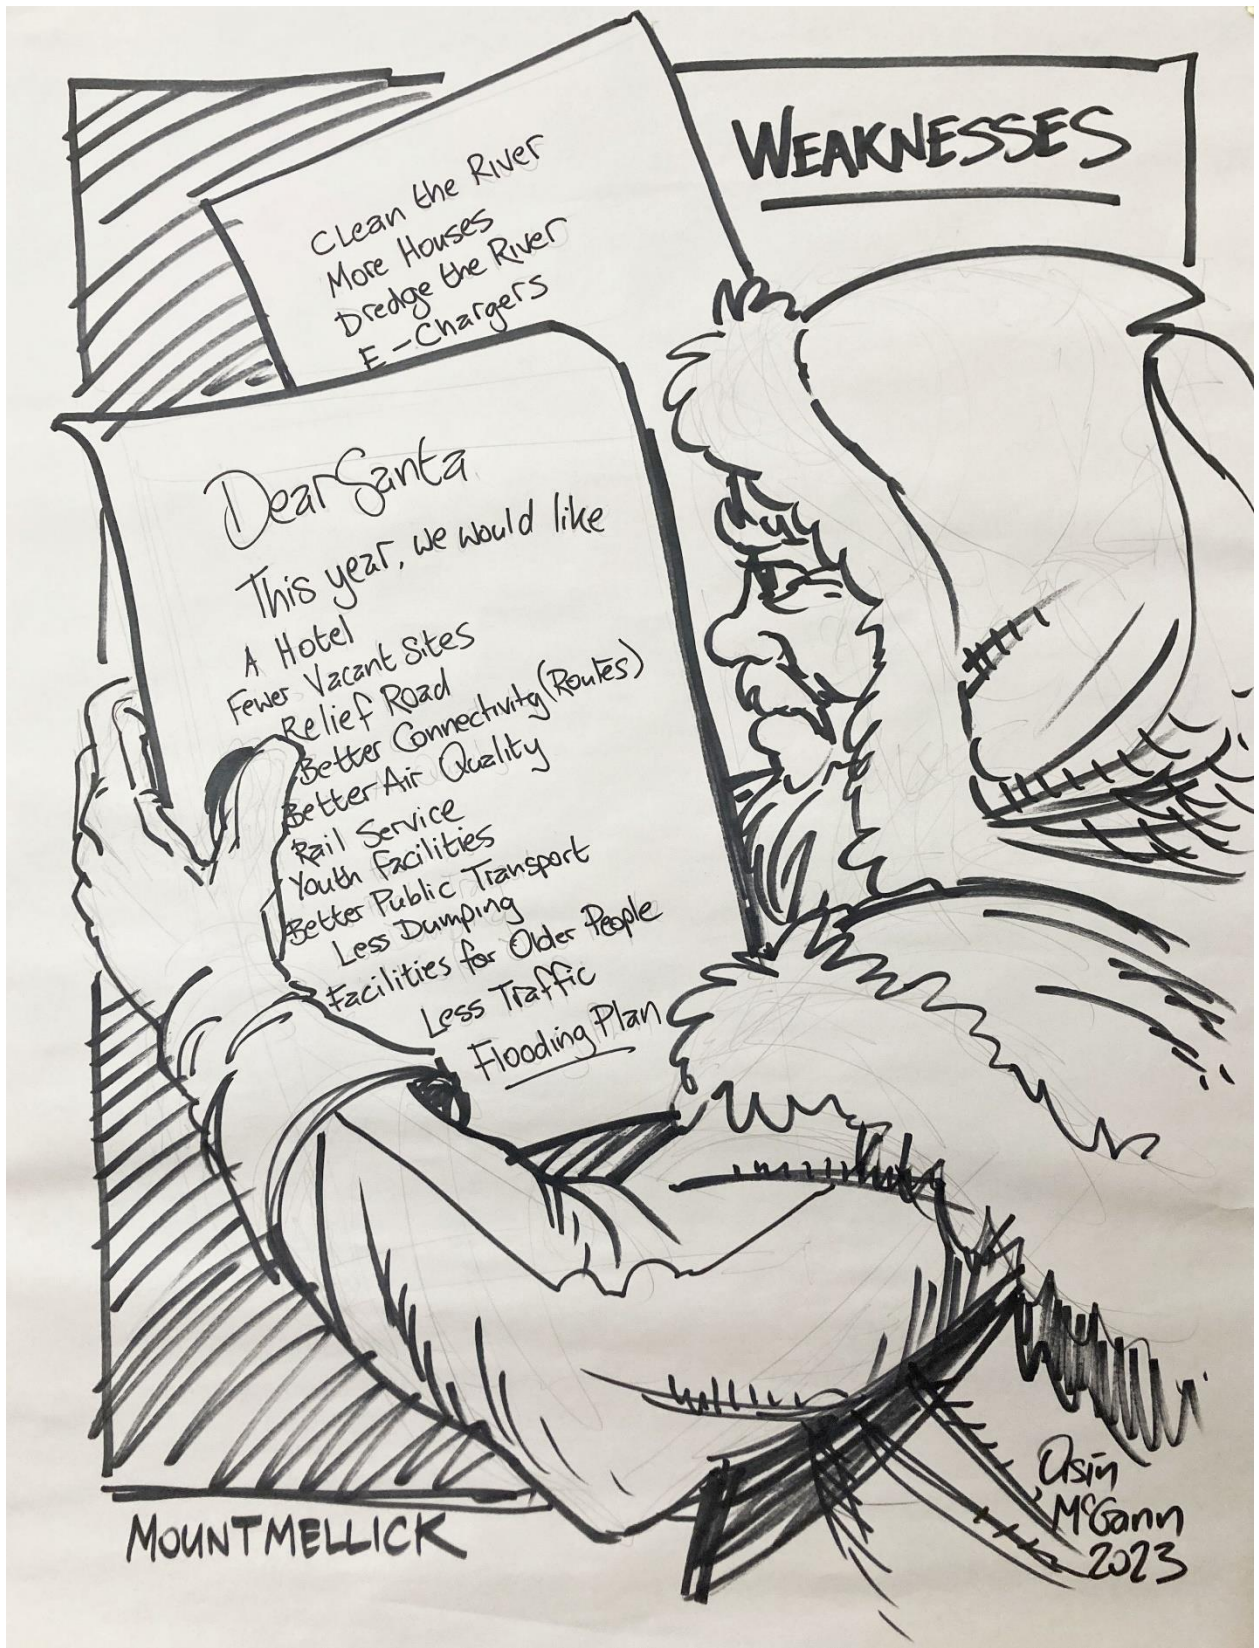 WEAKNESSES
Clean the River
More Houses
Dredge the River
E-Chargers
Dear Santa
This year, we would like
A Hotel
Fewer Vacant Sites
Relief Road
Better Connectivity (Routes)
Better Air Quality
Rail Service
Youth Facilities
Better Public Transport
Less Dumping
Facilities for Older People
Less Traffic
Flooding Plan
MOUNTMELLICK
Oisín
McGann
2023